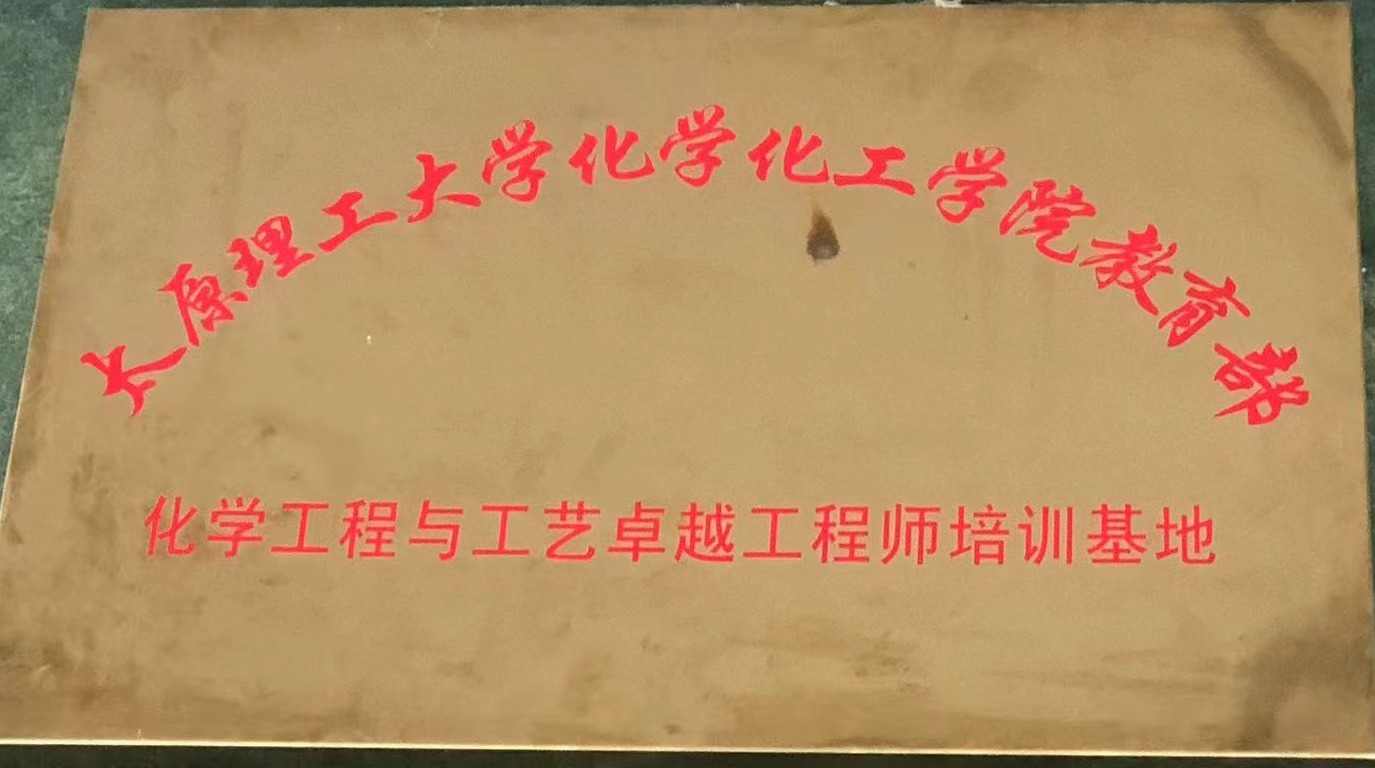 太原理工大学化学化工学院教育部
化学工程与工艺卓越工程师培训基地